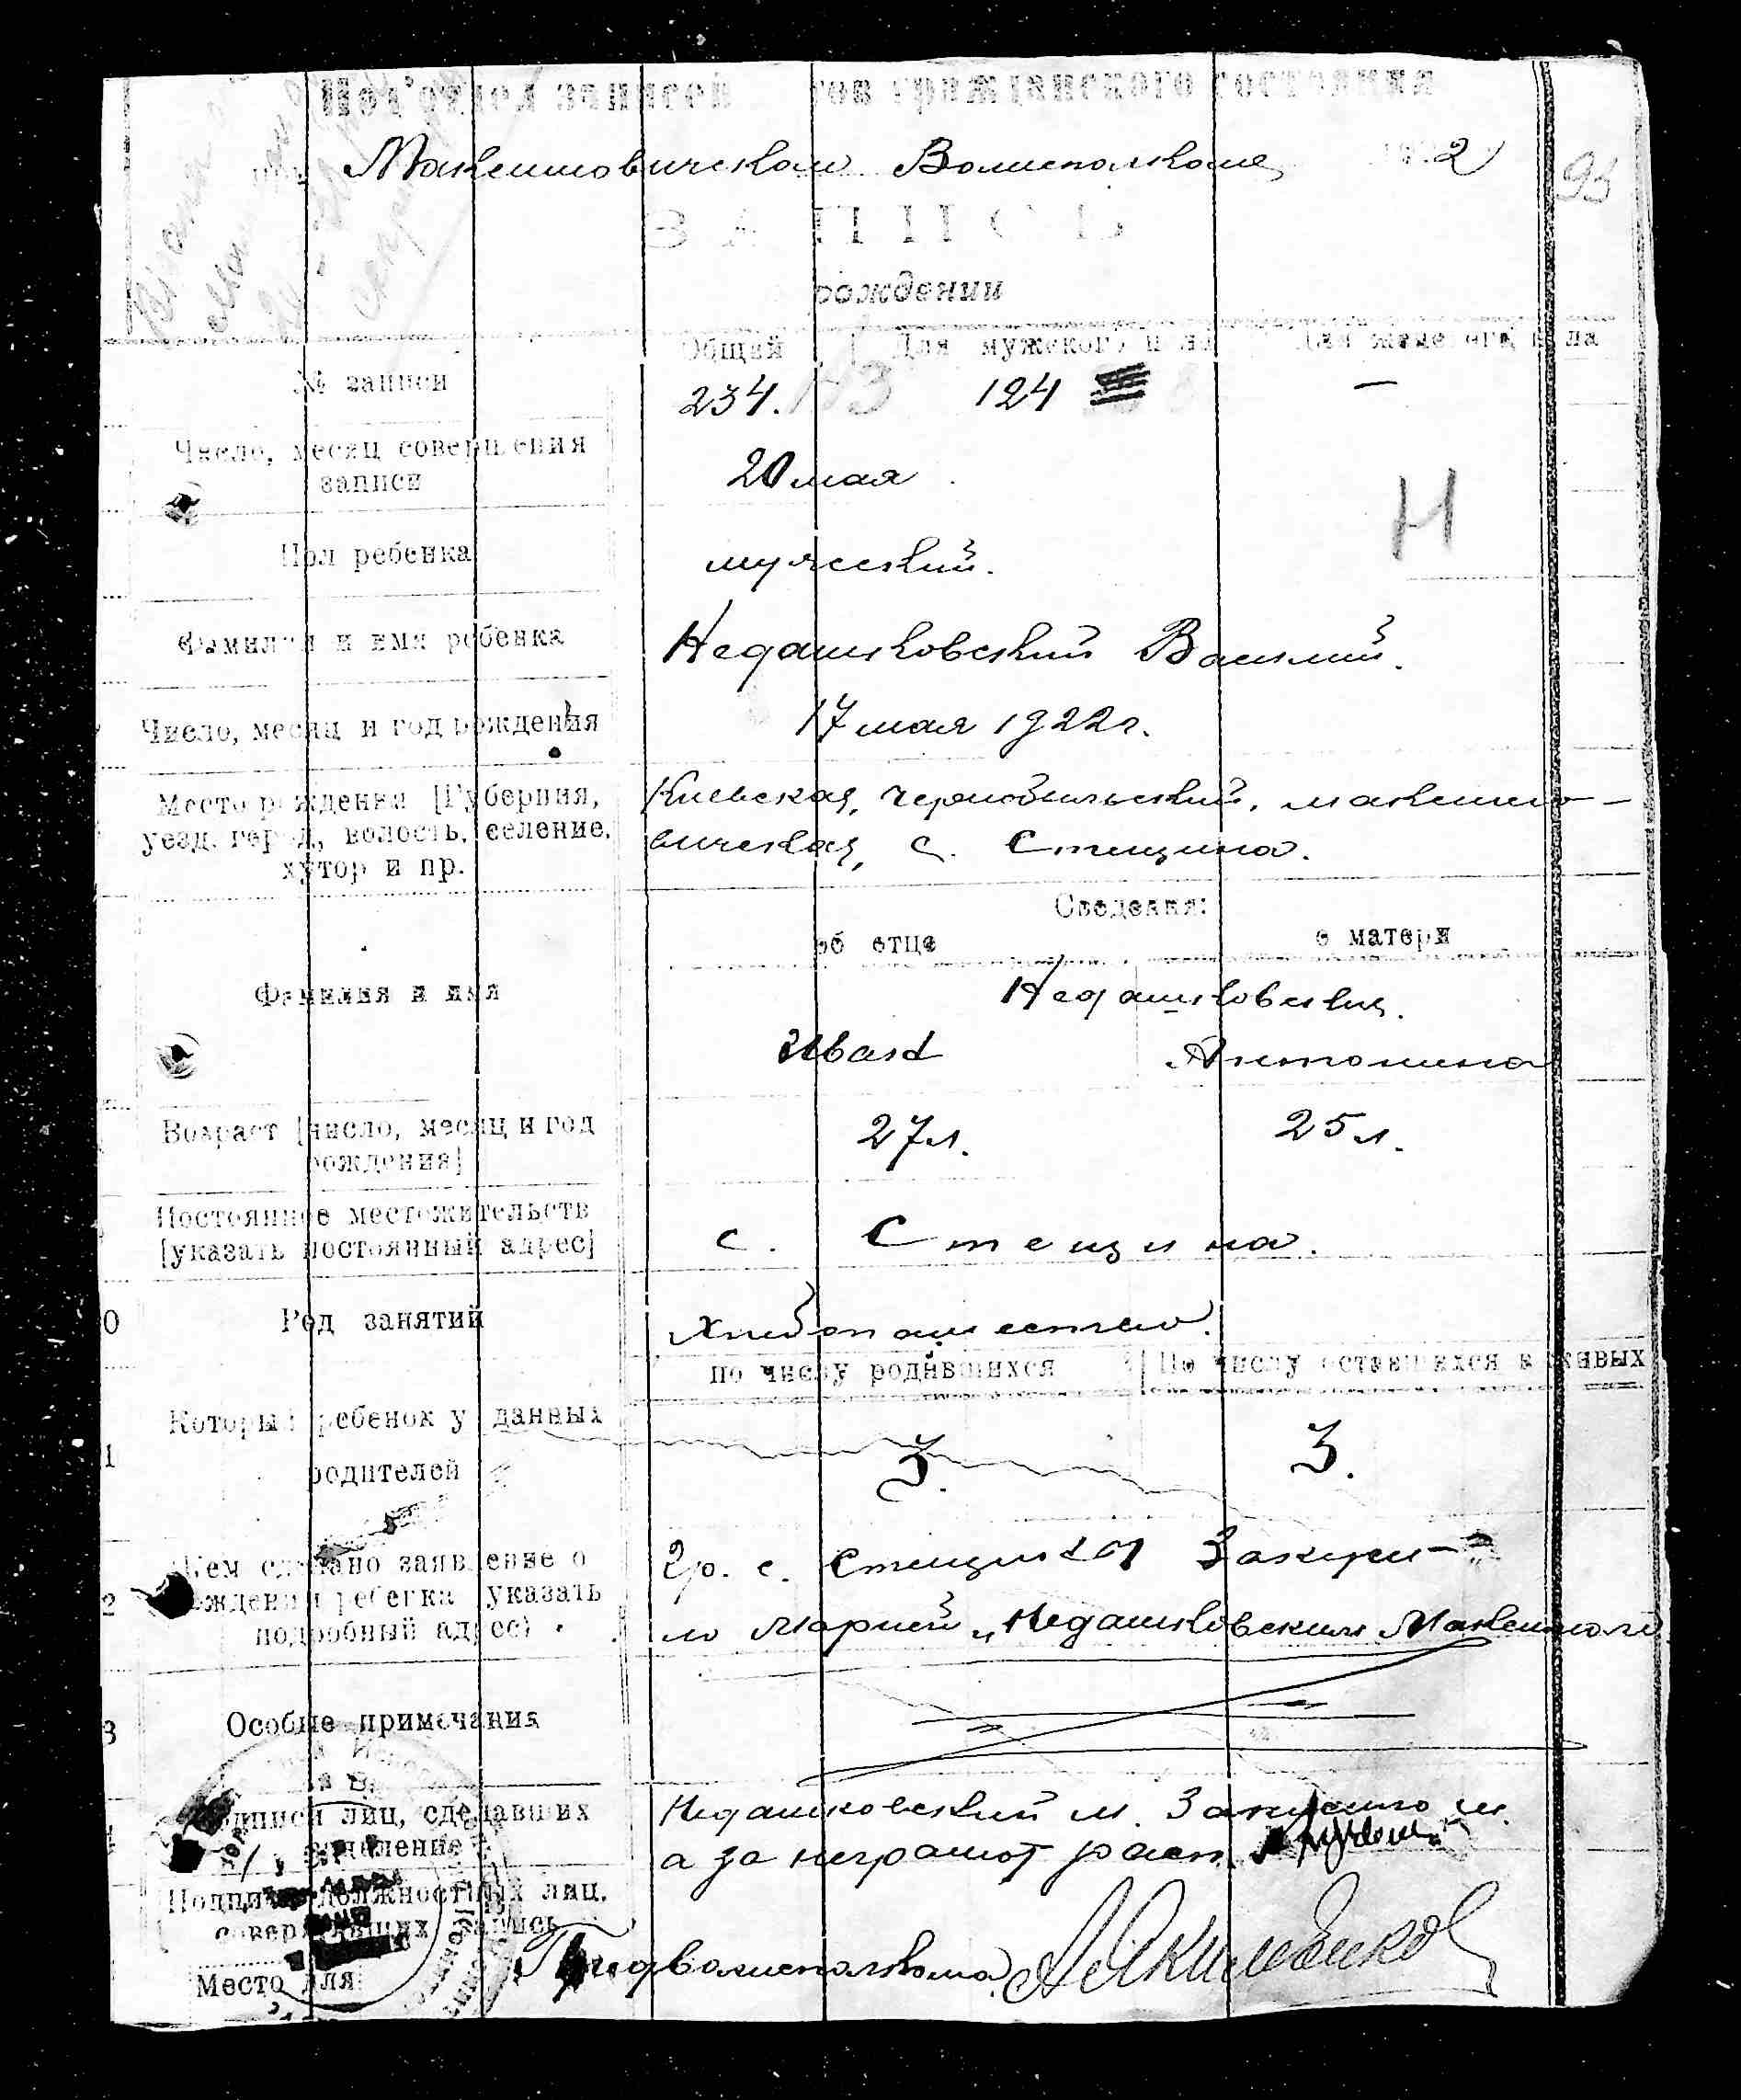 Подотдел записей ... гражданского состояния
Максимовическом Волисполкоме 1922
93
ЗАПИСЬ
рождении
Общий Для мужского пола Для женского пола
№ записи 234. 124 —
Число, месяц совершения
записи 20 мая
Н
Пол ребенка мужеский.
Фамилия и имя ребенка Недашковский Василий.
Число, месяц и год рождения 17 мая 1922 г.
Место рождения [Губерния, Киевская, Чернобыльский, Максимо-
уезд, город, волость, селение, вическая, с. Стещина.
хутор и пр.
Сведения:
об отце о матери
Фамилия и имя Недашковския.
Иван Антонина
Возраст [число, месяц и год 27 л. 25 л.
рождения]
Постоянное местожительств
[указать постоянный адрес] с. Стещина.
0 Род занятий Хлебопашество.
по числу родившихся По числу оставшихся в живых
Который ребенок у данных
1 родителей 3. 3.
Кем сделано заявление о гр. с. Стещиной
2 рождении ребенка указать
подробный адрес) Марией, Недашковским
3 Особые примечания
Подписи лиц, сделавших Недашковский М.
заявление а за неграмот расп.
Подписи должностных лиц,
совершавших запись
Предволисполкома
Место для